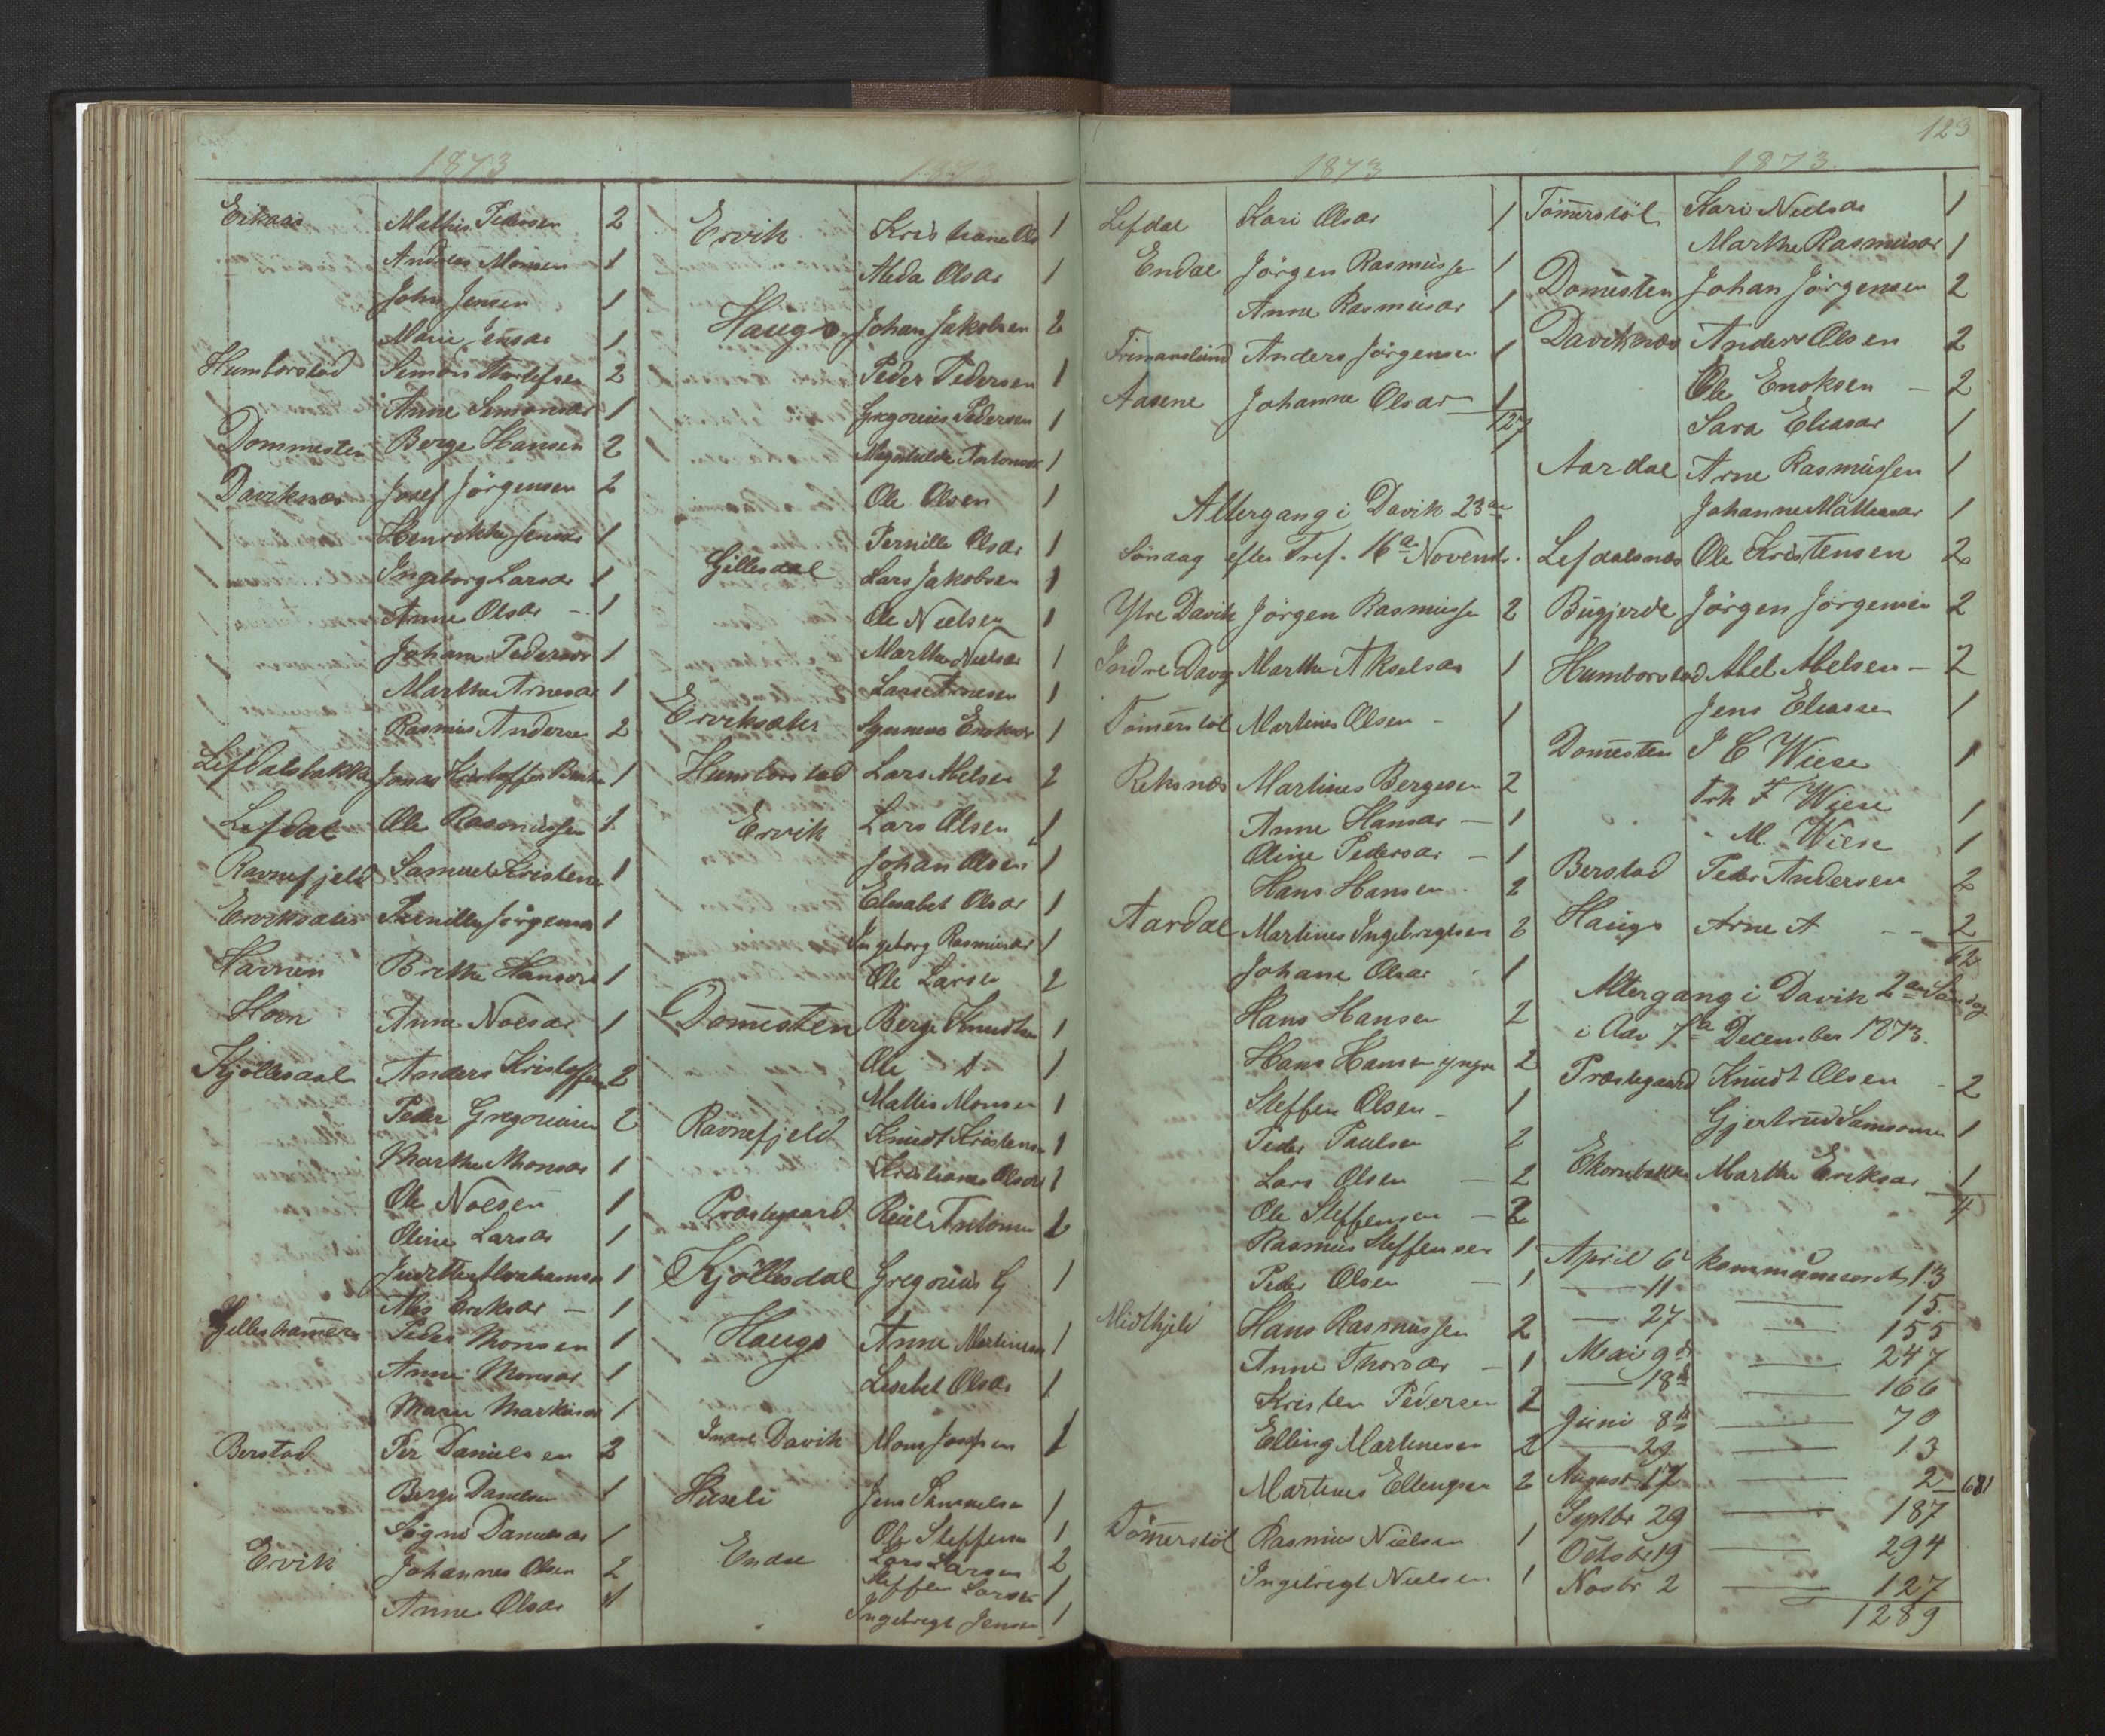 1873
Mathis Pedersen 2
Andreas Monsen 1
John Jensen 1
Marie Jensdr 1
Humborstad Simon 2
Anne Simonsdr 1
Dommesten Berge Hansen 2
Daviknæs Josef Jörgensen 2
Henrikke Jensdr 1
Ingeborg Larsdr 1
Anne Olsdr - 1
Johane Pedersdr 1
Marthe Arnesdr 1
Rasmus Andersen 2
Lefdalsbakke Jonas 1
Lefdal Ole Rasmussen 1
Ravnefjeld Samuel Kristens 1
Pernille Jörgensdr 1
Havnen Brithe Hansdr 1
Horn Anne Noesdr 1
Kjöllesdal Anders Kristoffersen 2
Peder Gregoriusen 2
Marthe Monsdr 1
Ole Noesen 1
Oline Larsdr 1
Abrahamsdr 1
Eriksdr - 1
Peder Monsen 1
Anne Monsdr 1
Marie Markusdr 1
Berstad Per Danielsen 2
Berge Danielsen 1
Danielsdr 1
Ervik Johannes Olsen 2
Anne Olsdr 1
1873
Ervik Kristiane Ols 1
Alida Olsdr 1
Haugs Johan Jakobsen 2
Peder Pedersen 1
Gregorius Pedersen 1
1
Ole Olsen 1
Pernille Olsdr 1
Gillesdal Lars Jakobsen 1
Ole Nielsen 1
Marthe Nielsdr 1
Lars Arnesen 1
1
Humborstad Lars Abelsen 2
Ervik Lars Olsen 1
Johan Olsen 1
Elisabet Olsdr 1
Ingeborg Rasmusdr 1
Ole Larsen 2
Dom̄esten Berge Knudtsen 1
Ole 1
Mathis Monsen 1
Ravnefjeld Knudt Kristens 1
Kristiane Olsdr 1
Præstegaard 2
Kjöllesdal Gregorius G 1
Haugs Anne 1
Lisebet Olsdr 1
Indre Davik Mons 1
Huseli Jens Samuelsen 1
Ole Steffensen 1
Endal Lars Larsen 2
Steffen Larsen 1
Ingebregt Jensen 1
1873
Lefdal Kari Olsdr 1
Endal Jörgen Rasmussen 1
Anne Rasmusdr 1
Frimanslund Anders Jörgensen 1
Aasene Johanne Olsdr 1
127
Altergang i Davik 23de
Söndag efter Tref. 16de Novembr.
Ytre Davik Jörgen Rasmussen 2
Indre Marthe Akselsdr 1
Tom̄erstöl Martinus Olsen - 1
Reksnæs Martinus Bergesen 2
Anne Hansdr - 1
Oline Pedersdr - 1
Hans Hansen 2
Aardal Martinus Ingebregtsen 2
Johane Olsdr 1
Hans Hansen 2
Hans Hansen yngre 2
Steffen Olsen - 1
Peder Paulsen 2
Lars Olsen - 2
Ole Steffensen - 2
Rasmus Steffensen 1
Peder Olsen - 1
Midthjeld Hans Rasmussen 2
Anne Thorsdr - 1
Kristen Pedersen 2
Elling Martinusen 2
Martinus Ellingsen 2
Töm̄erstöl Rasmus Nielsen 1
Ingebregt Nielsen 1
123
1873.
Töm̄erstöl Kari Nielsdr 1
Marthe Rasmusdr 1
Domesten Johan Jörgensen 2
Daviknæs Anders Olsen 2
Ole Enoksen - 2
Sara Eliasdr 1
Aardal Arne Rasmussen 1
Johanne 1
Lefdalsnæs Ole Kristensen 2
Bugjerde Jörgen Jörgensen 2
Humborstad Abel Abelsen - 2
Jens Eliassen 1
Domesten J C Wiese 1
F Wiese 1
M. Wiese 1
Berstad Peder Andersen 2
Haugs Arne A - - 2
62
Altergang i Davik 2den Söndag
i Adv 7de December 1873.
Præstegaard Knudt Olsen - 2
Gjertrud 1
Ekornbakke Marthe Eriksdr 1
4
April 6te 13
— 11 — 15
— 27 — 155
Mai 9de — 247
— 18de — 166
Juni 8de — 70
— 29 — 13
August 17 — 2 681
Septbr 29 — 187
Octobr 19 — 294
Novbr 2 — 127
1289